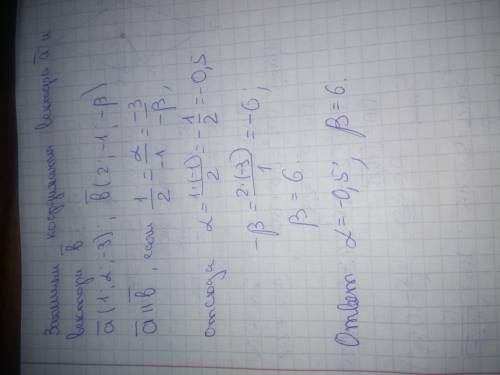 Запишем координаты вектора a̅ и
вектора b̅
a̅ (1; α; -3); b̅ (2; -1; -β)
a̅ || b̅, если 1/2 = α/-1 = -3/-β,
отсюда α = 1·(-1)/2 = -1/2 = -0,5
-β = 2·(-3)/1 = -6;
β = 6.
Ответ: α = -0,5; β = 6.